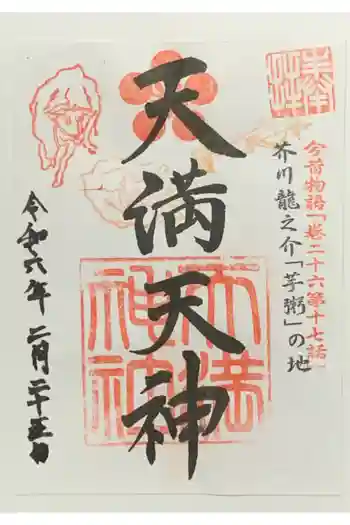 奉拝
今昔物語「巻二十六第十七話」
芥川龍之介「芋粥」の地
天満天神
天満神社
令和六年二月二十五日